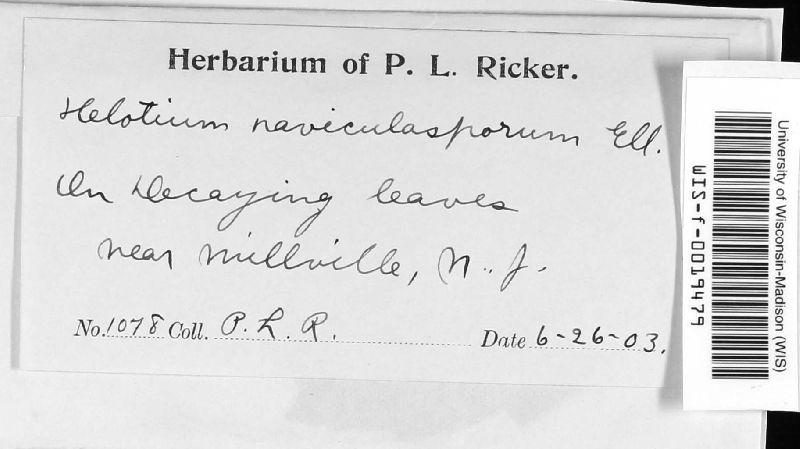 Herbarium of P. L. Ricker.
Helotium naviculasporum Ell.
On Decaying leaves
near Millville, N. J.
No. 1078 Coll. P. L. R. Date 6-26-03.
University of Wisconsin-Madison (WIS)
WIS-f-0019479